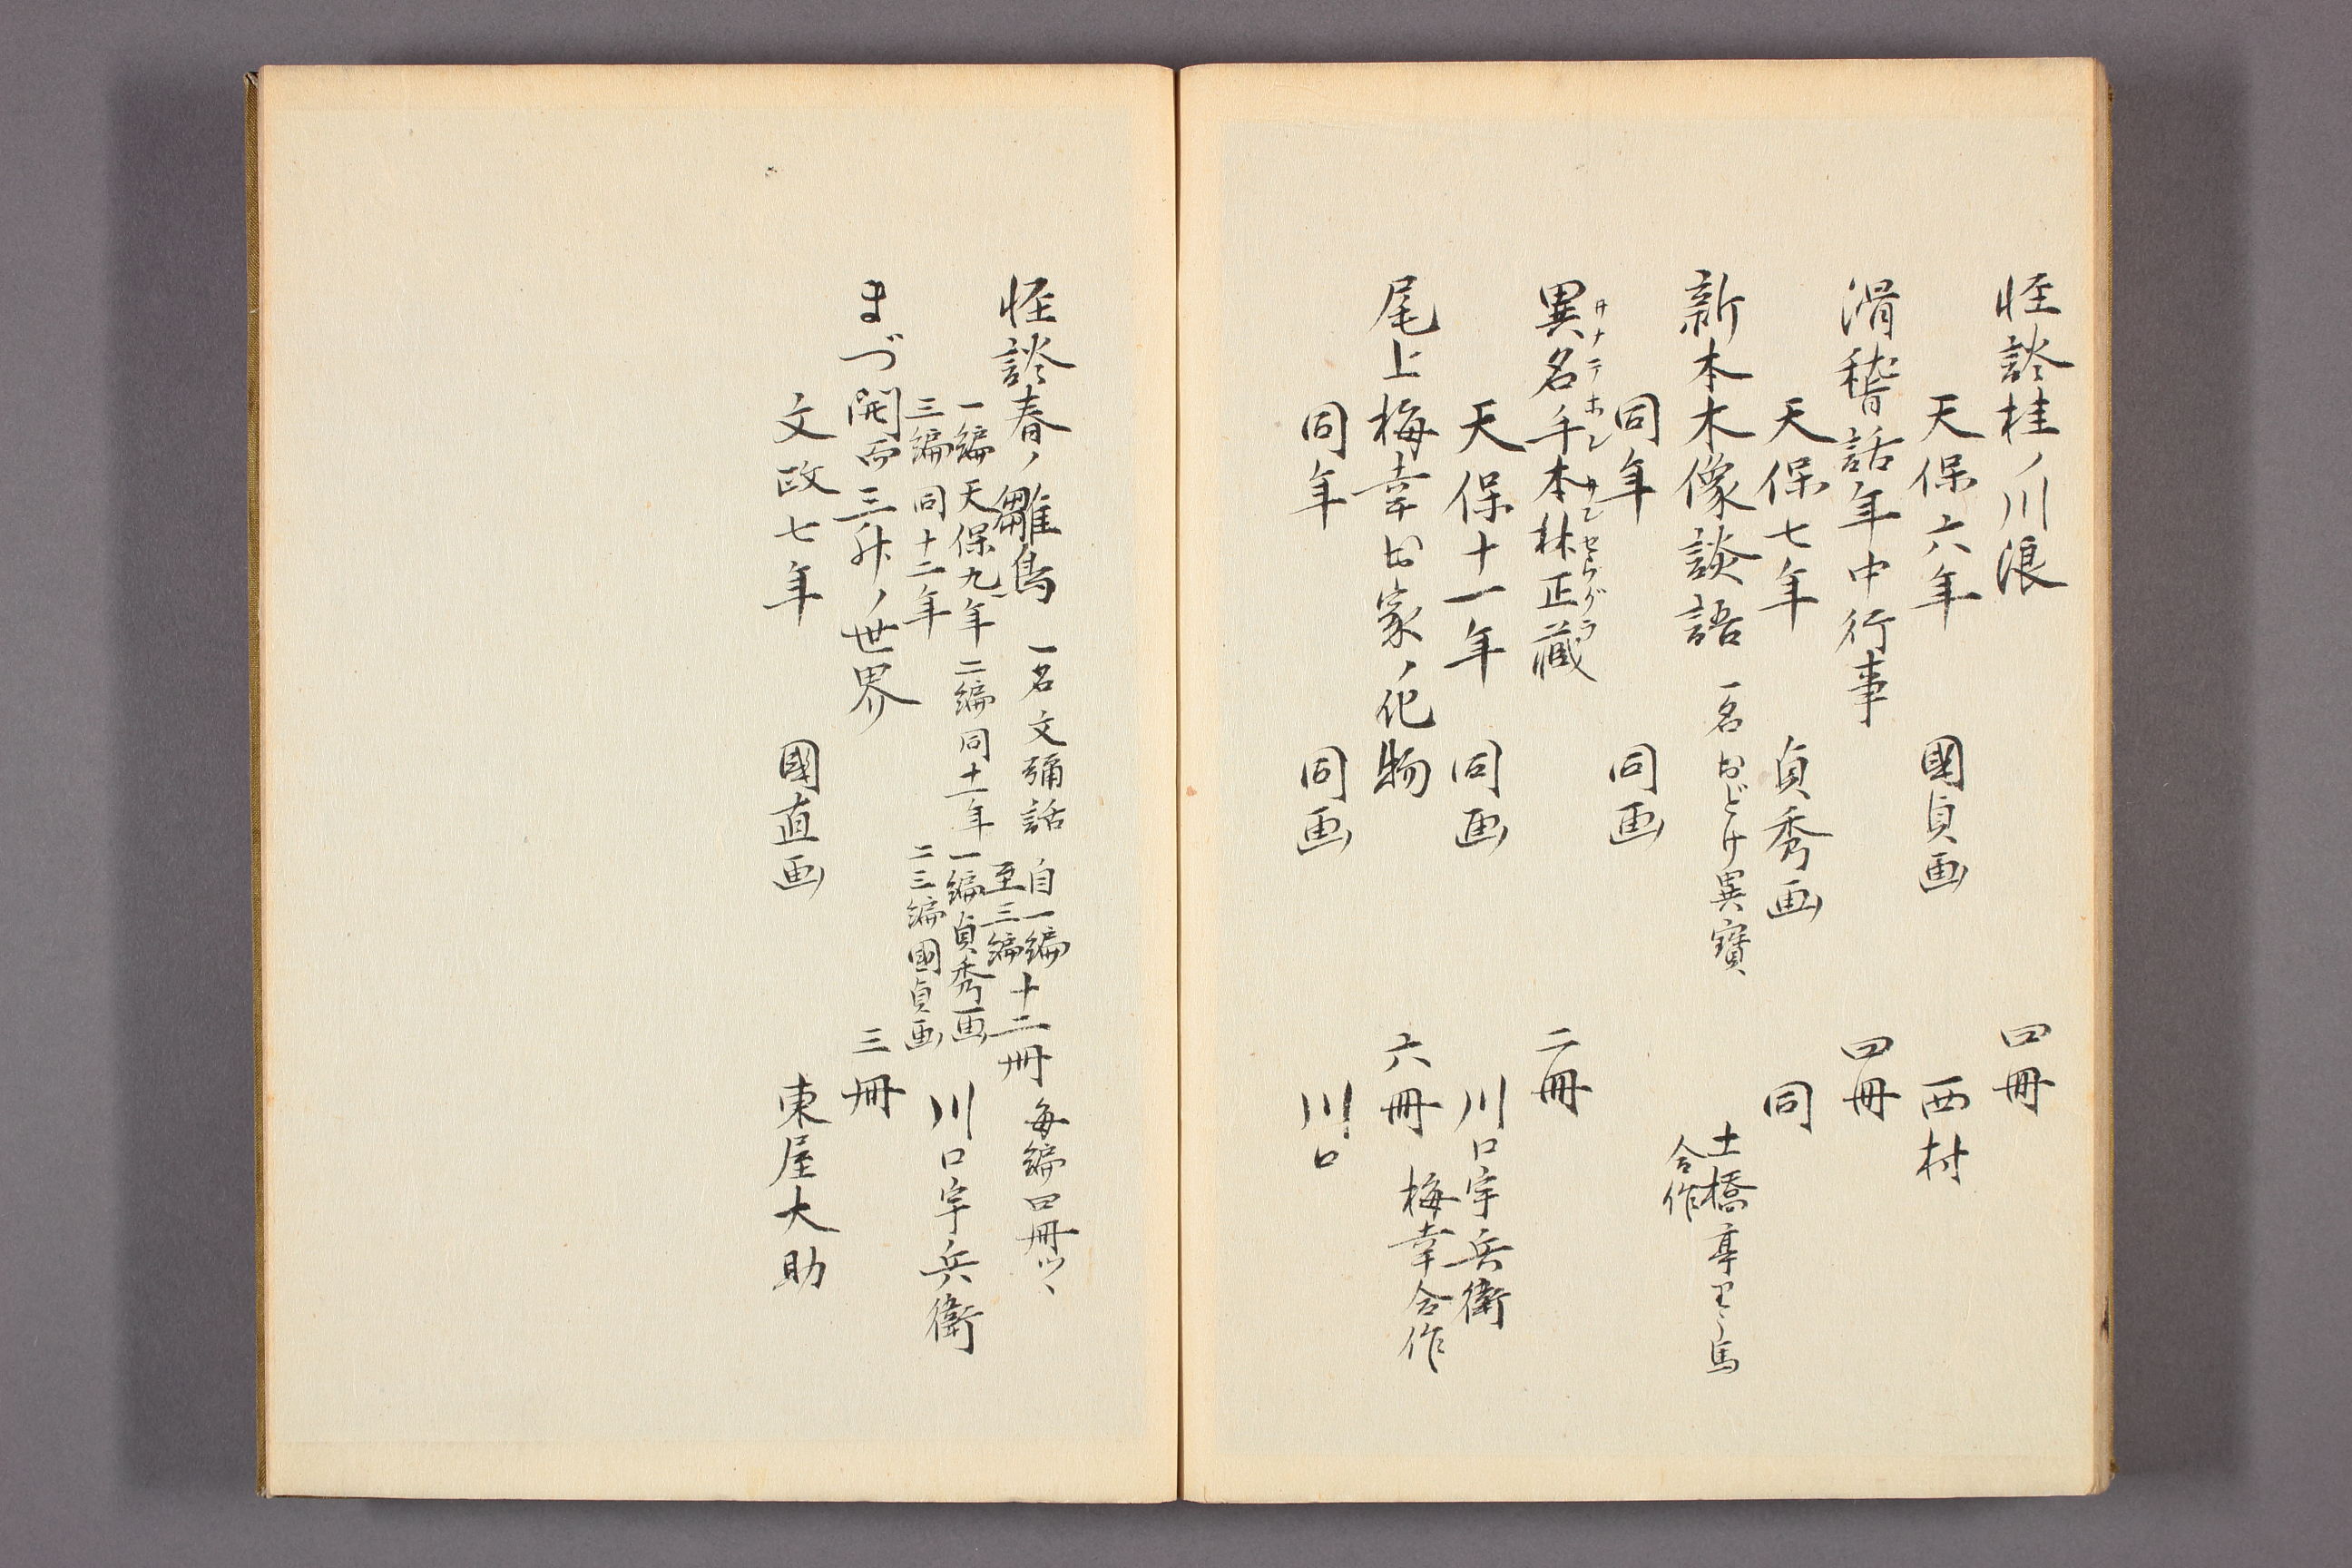 怪談桂ノ川浪 四冊
天保六年 國貞画 西村
滑稽話年中行事 四冊
天保七年 貞秀画 同
新本木像談語 一名おどけ異寳 土橋亭里う馬合作
同年 同画
異名手本林正蔵 二冊
カナテホン
天保十一年 同画 川口宇兵衛
尾上梅幸お家ノ化物 六冊 梅幸合作
同年 同画 川口
怪談春ノ雛鳥 一名文彌話 自一編至三編十二冊 毎編四冊ツヽ
一編天保九年 二編同十一年 一編貞秀画
三編同十二年 二三編國貞画 川口宇兵衛
まづ開西三升ノ世界 三冊
文政七年 國直画 東屋大助